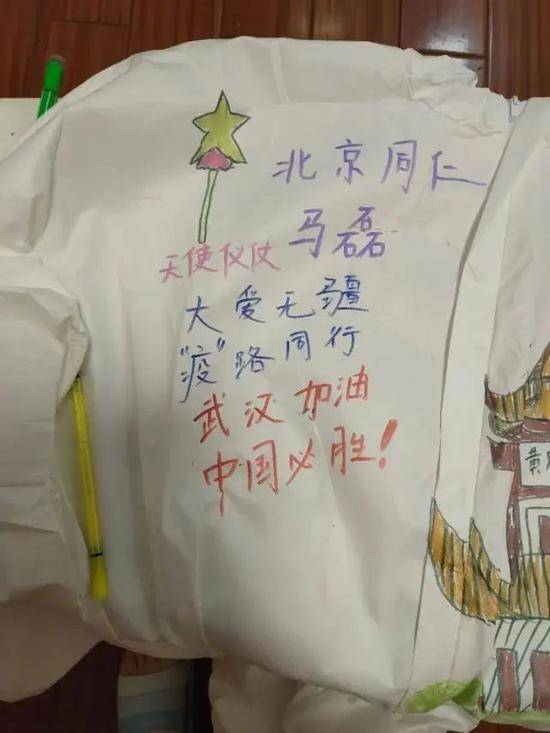 北京同仁
马磊
天使仪仗
大爱无疆
"疫"路同行
武汉加油
中国必胜!
黄